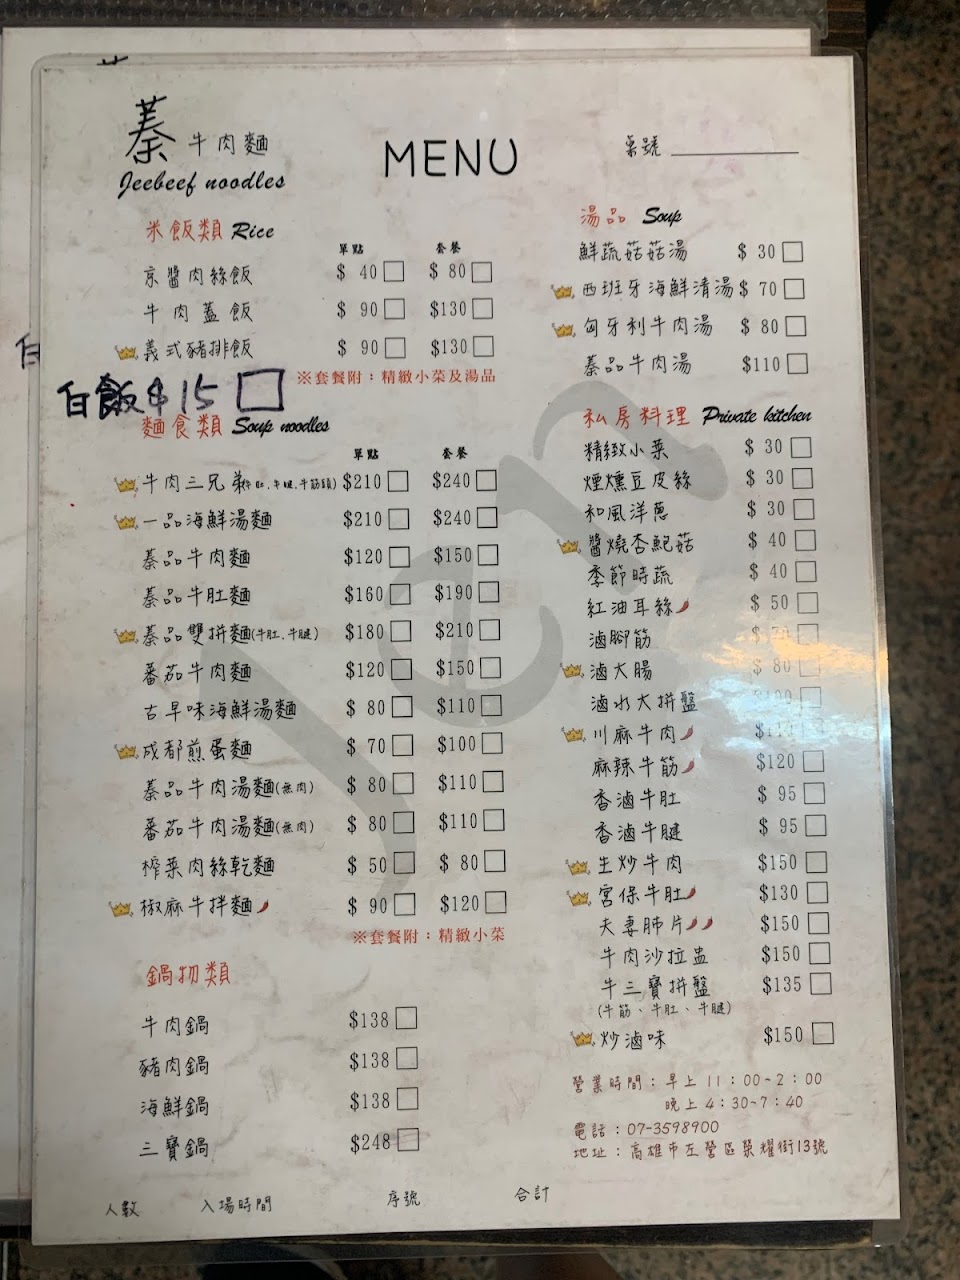 蓁 牛肉麵
Jeebeef noodles
MENU
桌號
米飯類 Rice
單點 套餐
京醬肉絲飯 $ 40 $ 80
牛肉蓋飯 $ 90 $130
義式豬排飯 $ 90 $130
※套餐附：精緻小菜及湯品
白飯$15
麵食類 Soup noodles
單點 套餐
牛肉三兄弟(牛肚、牛腱、牛筋頭) $210 $240
一品海鮮湯麵 $210 $240
蓁品牛肉麵 $120 $150
蓁品牛肚麵 $160 $190
蓁品雙拼麵(牛肚、牛腱) $180 $210
蕃茄牛肉麵 $120 $150
古早味海鮮湯麵 $ 80 $110
成都煎蛋麵 $ 70 $100
蓁品牛肉湯麵(無肉) $ 80 $110
蕃茄牛肉湯麵(無肉) $ 80 $110
榨菜肉絲乾麵 $ 50 $ 80
椒麻牛拌麵 $ 90 $120
※套餐附：精緻小菜
鍋物類
牛肉鍋 $138
豬肉鍋 $138
海鮮鍋 $138
三寶鍋 $248
湯品 Soup
鮮蔬菇菇湯 $ 30
西班牙海鮮清湯 $ 70
匈牙利牛肉湯 $ 80
蓁品牛肉湯 $110
私房料理 Private kitchen
精緻小菜 $ 30
煙燻豆皮絲 $ 30
和風洋蔥 $ 30
醬燒杏鮑菇 $ 40
季節時蔬 $ 40
紅油耳絲 $ 50
滷腳筋 $
滷大腸 $ 80
滷水大拼盤
川麻牛肉
麻辣牛筋 $120
香滷牛肚 $ 95
香滷牛腱 $ 95
生炒牛肉 $150
宮保牛肚 $130
夫妻肺片 $150
牛肉沙拉盅 $150
牛三寶拼盤 $135
(牛筋、牛肚、牛腱)
炒滷味 $150
營業時間：早上 11：00~2：00
晚上 4：30~7：40
電話：07-3598900
地址：高雄市左營區榮耀街13號
人數 入場時間 序號 合計